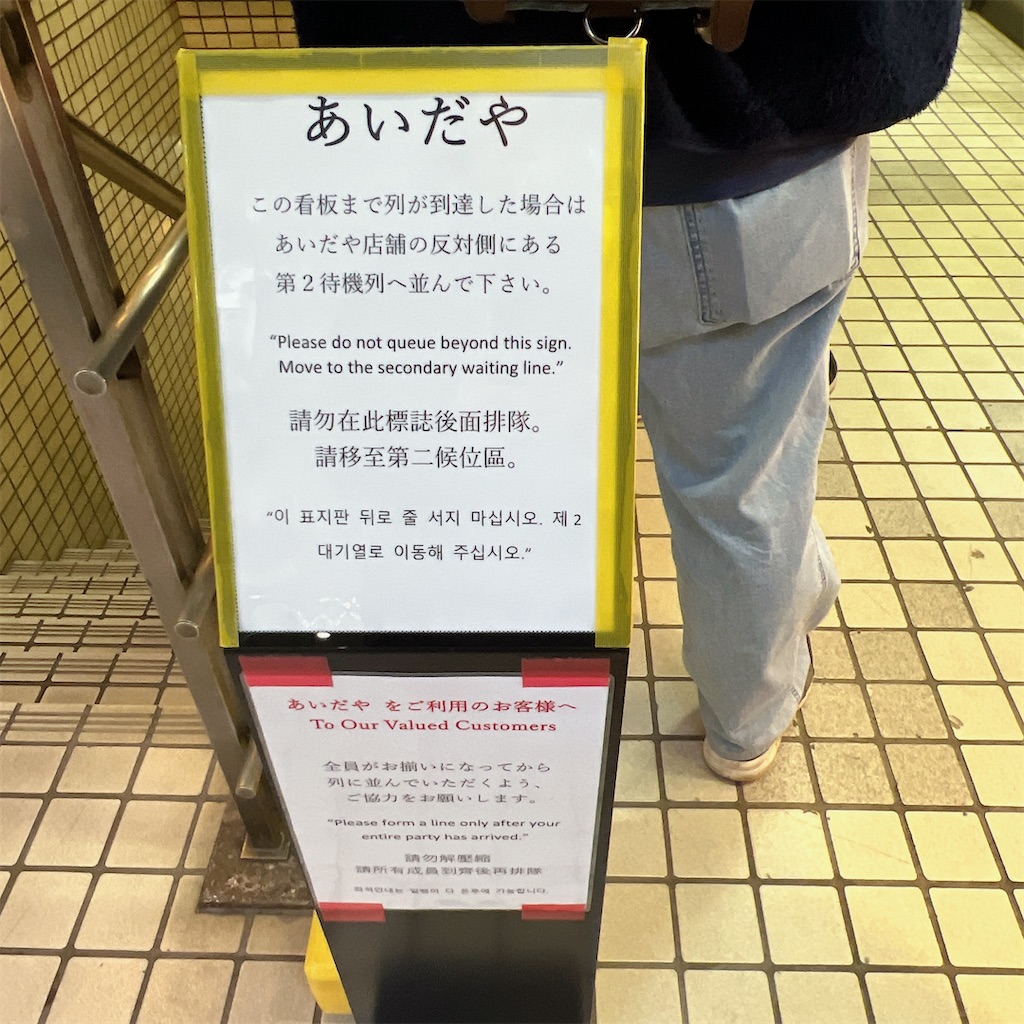 あいだや
この看板まで列が到達した場合は
あいだや店舗の反対側にある
第２待機列へ並んで下さい。
“Please do not queue beyond this sign.
Move to the secondary waiting line.”
請勿在此標誌後面排隊。
請移至第二候位區。
“이 표지판 뒤로 줄 서지 마십시오. 제 2
대기열로 이동해 주십시오.”
あいだや をご利用のお客様へ
To Our Valued Customers
全員がお揃いになってから
列に並んでいただくよう、
ご協力をお願いします。
“Please form a line only after your
entire party has arrived.”
請勿解壓縮
請所有成員到齊後再排隊
가능합니다.